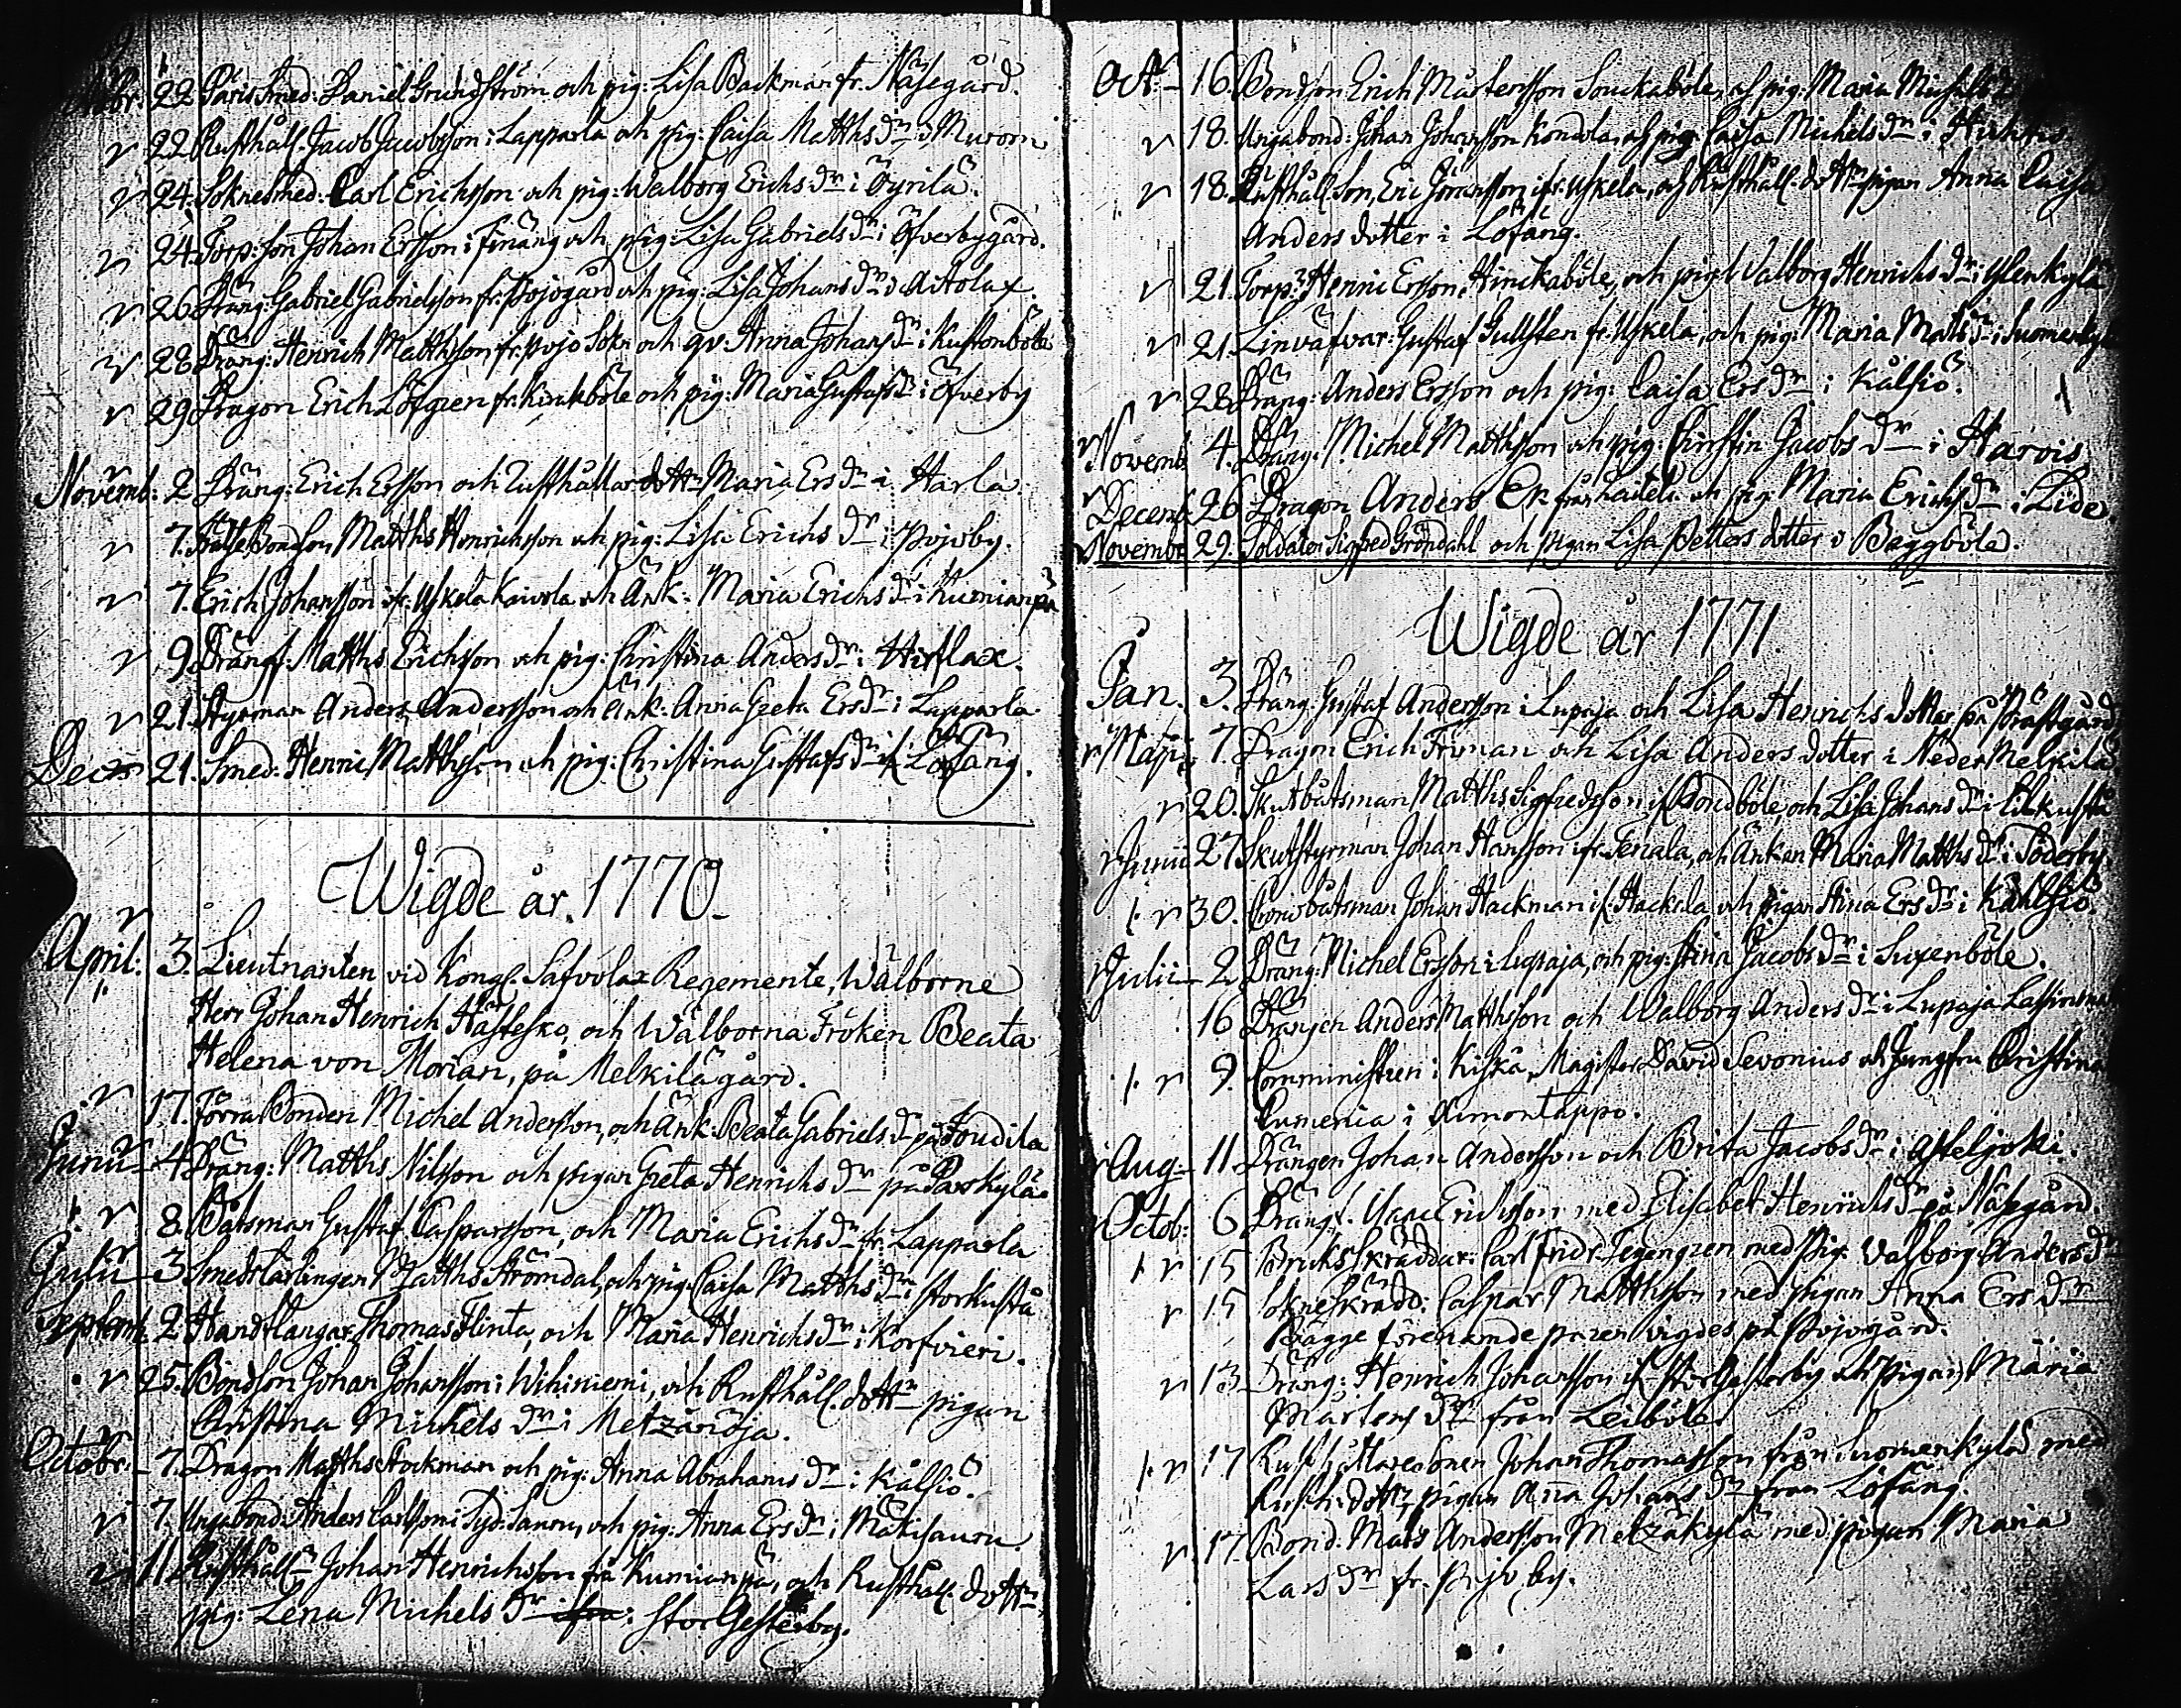 22 Paris Smed: Daniel Grundström och pig: Lisa Backman fr. Näsegård.
22 Rusthåll. Jacob Jacobsson i Lapparla och pig: Caisa Matths dr i Muron
24. Soknesmed: Carl Erichsson och pig: Walborg Erichs dr i Öyrilä.
24. Torp: son Johan Ersson i Finäng och pig: Lisa Gabriels dr i Öfverbygård.
26 Dräng: Gabriel Gabrielsson fr. Pojogård och pig: Lisa Johans dr i Antolax.
28 Dräng: Henrich Matthsson fr. Pojo Sokn och qv: Anna Johans dr i Kustonböle
29 Dragon Erich Löfgren fr. Kinkböle och pig: Maria Gustafs dr i Öfverby
Novemb: 2 Dräng: Erich Ersson och Rusthållar dottr Maria Ers dr i Harla.
7. Bondson Matths Henrichsson och pig: Lisa Erichs dr i Pojoby.
7. Erich Johansson ifr. Uskela Kaivola och Änk: Maria Erichs dr i Kumianpä
9. Dräng. Matths Erichsson och pig: Christina Anders dr i Hirslax.
21. Styrman Anders Andersson och Änk: Anna Greta Ers dr i Lapparla
Decr 21. Smed: Henric Matthsson och pig: Christina Gustafs dr Löfäng.
Wigde år. 1770.
April: 3. Lieutnanten vid Kongl. Safvolax Regemente, Wälborne
Herr Johan Henrich Hästesko, och Wälborna Fröken Beata
Helena von Morian, på Melkilägård.
17. Förra Bonden Michel Andersson, och Änk: Beata Gabriels dr på Joudila
Junii 4 Dräng: Matths Nilsson och pigan Greta Henrichs dr på Parkylä
8. Båtsman Gustaf Casparsson, och Maria Erichs dr fr. Lapparla
Julii 3 Smedslärlingen Matths Strömdal, och pig: Caisa Matths dr i Storkustä
Septemb. 2 Handtlangar Thomas Flinta, och Maria Henrichs dr i Korfvieri.
25. Bondson Johan Johansson i Wihiniemi, och Rusthåll. dottr pigan
Christina Michels dr i Metzäröja.
Octobr. 7. Dragon Matths Stockman och pig: Anna Abrahams dr i Källsiö.
7. Ungabond: Anders Carlsson i Syd: Sauru, och pig: Anna Ers dr i Mäkisauru
11 Rusthållr Johan Henrichsson frå Kumianpä, och Rusthåll. dottr,
pig: Lena Michels dr ifrå: Stor Gesterby.
Oct. 16. Bondson Erich Mårtensson Souckaböle, och pig: Maria Michels d
18. Ungabond: Johan Johansson Kondola, och pig: Caisa Michels dr i
18. Rusthåll. Son, Eric Göransson ifr. Uskela, och Rusthåll. dottr pigan Anna Caisa
Anders dotter i Löfäng.
21. Torp: Henric Ersson Hinckaböle, och pig: Walborg Henrichs dr i Ylenkylä
21. Linväfvar: Gustaf Gullsten fr. Uskela, och pig: Maria Mats dr i Suomenkylä
28 Dräng: Anders Ersson och pig: Caisa Ers dr i Källsiö.
Novemb. 4. Dräng. Michel Matthsson och pig: Christin Jacobs dr i Harvis
Decemb. 26 Dragon Anders Ek från och pig: Maria Erichs dr i Lide.
Novembr. 29. Soldaten Sigfred Gröndahl och pigan Lisa Petters dotter i Baggböle.
Wigde år 1771.
Jan. 3. Dräng. Gustaf Andersson i Lupaja och Lisa Henrichs dotter på Prästgård
Maji 7. Dragon Erich Friman och Lisa Anders dotter i Neder Melkilä.
20. Skutbåtsman Matths Sigfredsson if. Bondböle, och Lisa Johans dr i Lilkustå
Junii 27 Skutstyrman Johan Hansson ifr. Tenala, och Änkan Maria Matths dr i Söderby.
30. Cronobåtsman Johan Hackman if. Hackela, och pigan Stina Ers dr i Källsiö.
Julii 2 Dräng. Michel Ersson i Lupaja, och pig. Stina Jacobs dr i Suxenböle.
16 Drängen Anders Matthsson och Walborg Anders dr i Lupaja
9. Comministren i Kiskå, Magister David Sevonius och Jungfru Christina
Cumenia i Aimontappo.
Aug 11 Drängen Johan Andersson och Brita Jacobs dr i Asteljoki.
Octob: 6 Dräng. Isaac Erichsson med Elisabet Henrichs dr på Näsgård.
15 Bruks Skräddar: Carl Fridr. Tegengren med Pig: Valborg Anders dr
15 Sokneskrädd: Caspar Matthsson med pigan Anna Ers dr
Bägge förenämde paren vigdes på Pojogård.
13 Dräng: Henrich Johansson if. Stor Gesterby och Pigan Maria
Mårtens dr från Leiböle.
17 Rusthållaresonen Johan Thomasson från Suomenkylä med
Rusth. dottr, pigan Anna Johans dr från Löfäng.
17. Bond. Mats Andersson Metzäkylä med pigan Maria
Lars dr fr. Pojo by.